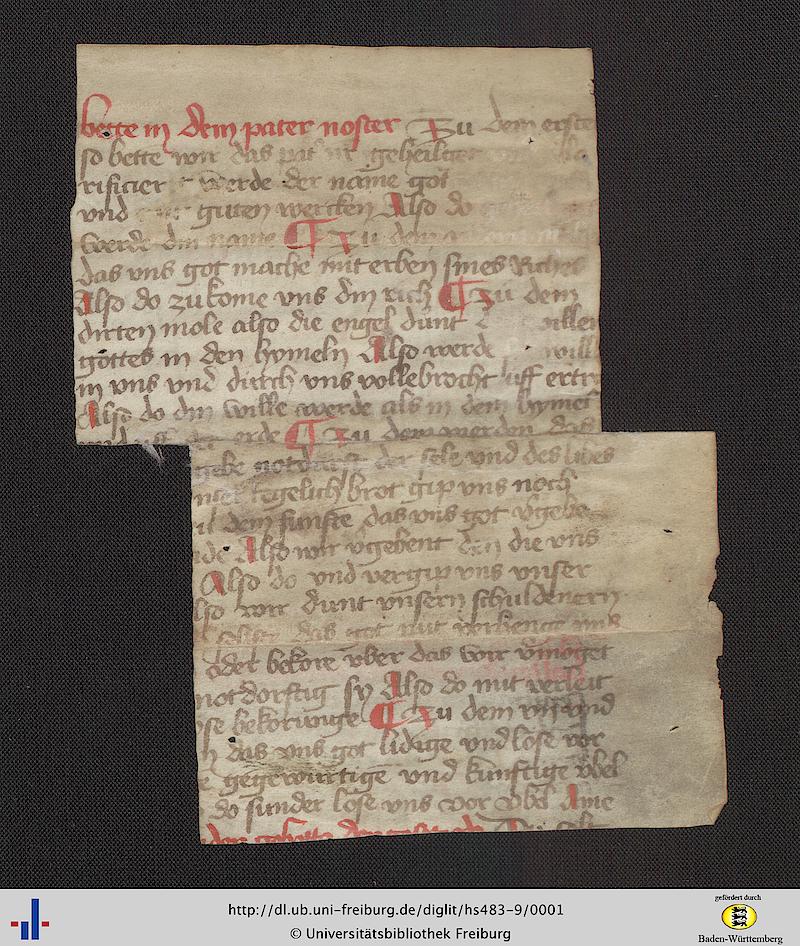 bette in dem pater noster Zu dem erste
so bette wir das pat nr geheilget
rificier werde der name got
vnd guten wercken Also do
werde din name Zu dem
das vns got mache mit erben sines Riches
Also do zu kome vns din rich Zu dem
dirten mole also die engel dunt willen
gottes in den hymeln Also werde will
in vns vnd durch vns vollebrocht uff ertr
Also do din wille werde als in dem hymel
vnd uff der erde Zu dem vierden das
gebe notdurft der sele vnd des libes
tegelich brot gip vns noch
dem funfte das vns got vgebe
Also wir vgebent den die vns
Also do vnd vergip vns vnser
also wir dunt vnsern schuldenern
das got nit verhenge vns
oder bekore vber das wir vmoget
notdorftig sy Also do nit verleit
bekorunge Zu dem
das vns got lidige vnd lose vor
gegewurtige vnd kunftige vbel
do sunder lose vns vor vbel Ame
http://dl.ub.uni-freiburg.de/diglit/hs483-9/0001
© Universitätsbibliothek Freiburg
gefördert durch
Baden-Württemberg